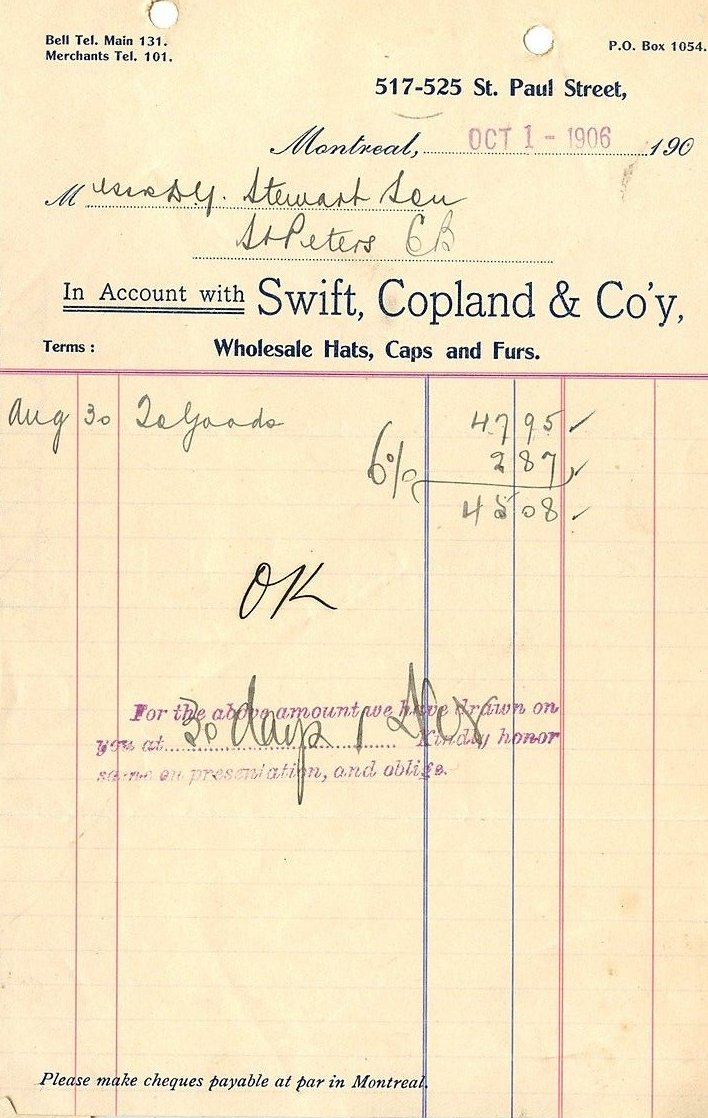 Bell Tel. Main 131.
Merchants Tel. 101.
P.O. Box 1054.
517-525 St. Paul Street,
Montreal, OCT 1 - 1906 190
Messrs Stewart Son
St Peters C B
In Account with Swift, Copland & Co'y,
Terms: Wholesale Hats, Caps and Furs.
Aug 30 To Goods 47 95 ✓
6% 2 87 ✓
45 08 ✓
OK
For the above amount we have drawn on
you at 30 days 1 Kindly honor
same on presentation, and oblige.
Please make cheques payable at par in Montreal.